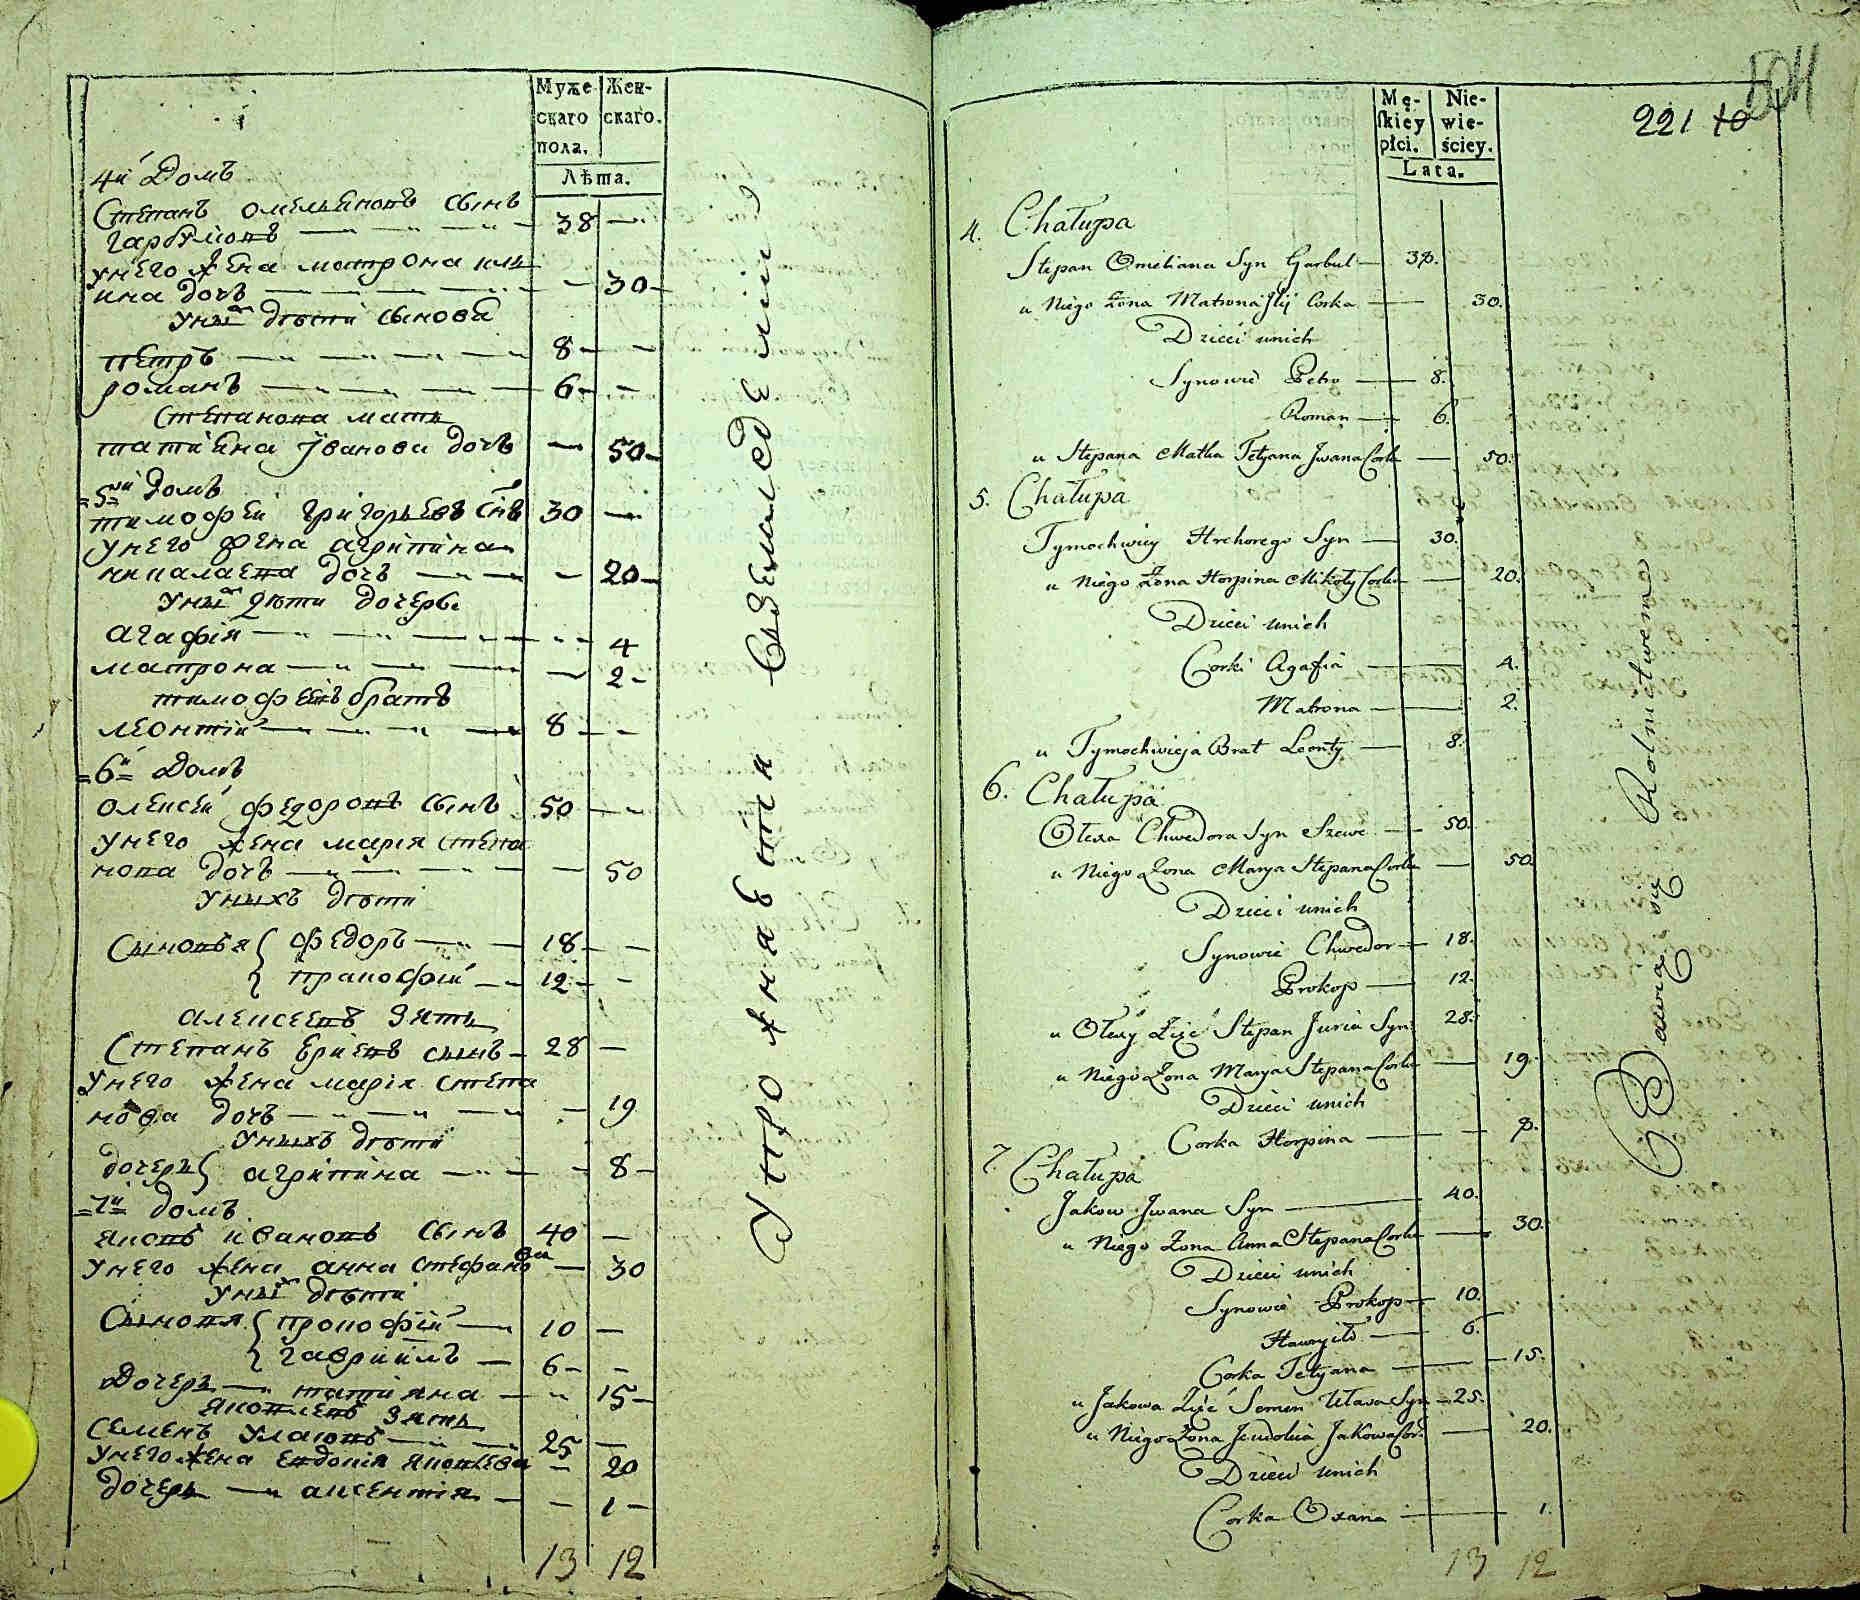 Муже
скаго
пола.
Жен-
скаго.
Лѣта.
4й Домъ
Степанъ омельяновъ сынъ
гарбузовъ 38
унего жена матрона или
ина дочъ 30
уных дѣти сынова
петръ 8
романъ 6
степанова мать
татияна Іванова дочъ 50
5й Домъ
тимофей григорьевъ снъ 30
унего жена агрипина
николаева дочъ 20
уных дѣти дочерѣ
агафія 4
матрона 2
тимофеевъ братъ
леонтій 8
6й Домъ
олексей федоровъ сынъ 50
унего жена марія степа
нова дочъ 50
уныхъ дѣти
сыновья федоръ 18
пракофій 12
алексеевъ зять
степанъ юриевъ сынъ 28
унего жена марія степа
нова дочъ 19
уныхъ дѣти
дочерь агрипина 8
7й домъ
яковъ ивановъ сынъ 40
унего жена анна стефанова 30
уных дѣти
сыновя прокофій 10
гавриилъ 6
дочерь татияна 15
яковлевъ зять
семенъ уласовъ 25
унего жена евдокія яковлева 20
дочерь аксентия 1
13 12
Упражняется вземледелии
504
221 10
Mę-
skiey
płci.
Nie-
wie-
ściey.
Lata.
4. Chałupa
Stepan Omeliana Syn Garbuz 38.
u Niego Żona Matrona Jlij Corka 30.
Dzieci unich
Synowie Petro 8.
Roman 6.
u Stepana Matka Tetyana Jwana Corka 50.
5. Chałupa
Tymochwiey Hrehorego Syn 30.
u Niego Żona Horpina Mikoły Corka 20.
Dzieci unich
Corki Agafia 4.
Matrona 2.
u Tymochwieja Brat Leonty 8.
6. Chałupa
Ołexa Chwedora Syn Szewc 50.
u Niego Żona Marya Stepana Corka 50.
Dzieci unich
Synowie Chwedor 18.
Prokop 12.
u Ołexy Zięć Stepan Juria Syn 28.
u Niego Żona Marya Stepana Corka 19.
Dzieci unich
Corka Horpina 8.
7. Chałupa
Jakow Jwana Syn 40.
u Niego Żona Anna Stepana Corka 30.
Dzieci unich
Synowie Prokop 10.
Hawryiło 6.
Corka Tetyana 15.
u Jakowa Zięć Semen Ułasa Syn 25.
u Niego Żona Jeudokia Jakowa Cor: 20.
Dzieci unich
Corka Oxana 1.
13 12
Bawią się Rolnictwem